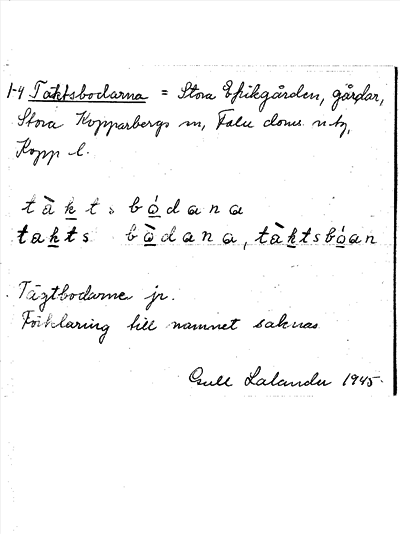 1-4 Täktsbodarna = Stora Ehikgården, gårdar,
Stora Kopparbergs sn, Falu doms. n tg,
Kopp l.
t à k t s b ó d a n a
t a k t s b ò d a n a, t à k t s b ó a n
Tägtbodarne jr.
Förklaring till namnet saknas
Gull Lalander 1945.